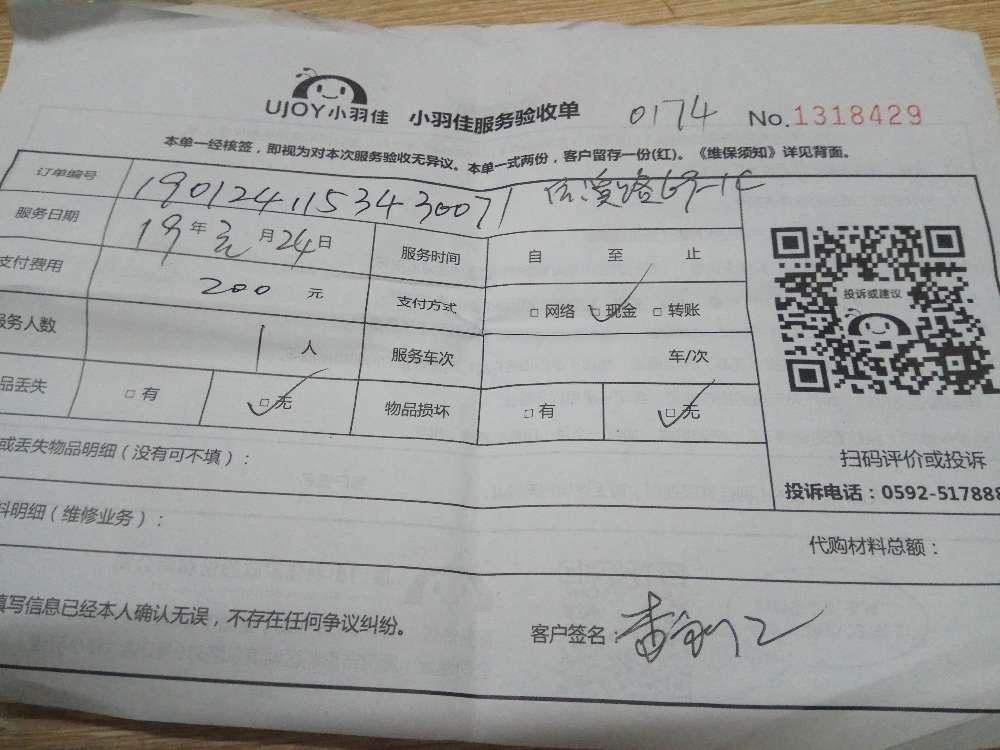 UJOY小羽佳 小羽佳服务验收单 0174 No.1318429
本单一经核签，即视为对本次服务验收无异议。本单一式两份，客户留存一份(红)。《维保须知》详见背面。
订单编号 190124115343007１ 路69-1C
服务日期 19年元月24日 服务时间 自 至 止
支付费用 200元 支付方式 □网络 □现金 □转账
服务人数 1人 服务车次 车/次
品丢失 □有 □无 物品损坏 □有 □无
投诉或建议
扫码评价或投诉
投诉电话：0592-517888
或丢失物品明细（没有可不填）：
料明细（维修业务）：
代购材料总额：
填写信息已经本人确认无误，不存在任何争议纠纷。
客户签名：